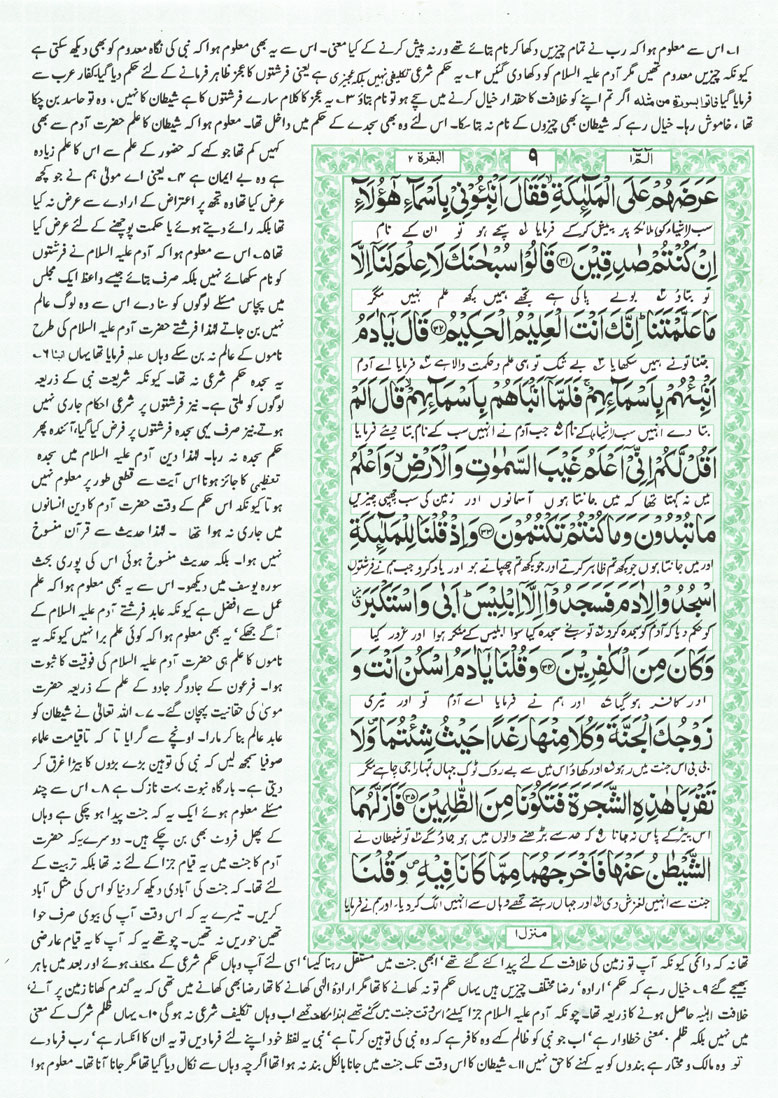 ۱۔ اس سے معلوم ہوا کہ رب نے تمام چیزیں دکھا کر نام بتائے تھے ورنہ پیش کرنے کے کیا معنی۔ اس سے یہ بھی معلوم ہوا کہ نبی کی نگاہ معدوم کو بھی دیکھ سکتی ہے
کیونکہ چیزیں معدوم تھیں مگر آدم علیہ السلام کو دکھا دی گئیں ۲۔ یہ حکم شرعی تکلیفی نہیں بلکہ تعجیزی ہے یعنی فرشتوں کا عجز ظاہر فرمانے کے لئے حکم دیا گیا۔ کفار عرب سے
فرمایا گیا فاتوا بسورۃ من مثلہ اگر تم اپنے کو خلافت کا حقدار خیال کرنے میں سچے ہو تو نام بتاؤ ۳۔ یہ عجز کا کلام سارے فرشتوں کا ہے شیطان کا نہیں، وہ تو حاسد بن چکا
تھا، خاموش رہا۔ خیال رہے کہ شیطان بھی چیزوں کے نام نہ بتا سکا۔ اس لئے وہ بھی سجدے کے حکم میں داخل تھا۔ معلوم ہوا کہ شیطان کا علم حضرت آدم سے بھی
کہیں کم تھا جو کہے کہ حضور کے علم سے اس کا علم زیادہ
ہے وہ بے ایمان ہے ۴۔ یعنی اے مولیٰ ہم نے جو کچھ
عرض کیا تھا وہ تجھ پر اعتراض کے ارادے سے عرض نہ کیا
تھا بلکہ رائے دیتے ہوئے یا حکمت پوچھنے کے لئے عرض کیا
تھا ۵۔ اس سے معلوم ہوا کہ آدم علیہ السلام نے فرشتوں
کو نام سکھائے نہیں بلکہ صرف بتائے جیسے واعظ ایک مجلس
میں پچاس مسئلے لوگوں کو سنا دے اس سے وہ لوگ عالم
نہیں بن جاتے لہٰذا فرشتے حضرت آدم علیہ السلام کی طرح
ناموں کے عالم نہ بن سکے وہاں علم فرمایا تھا یہاں انبأ ۶۔
یہ سجدہ حکم شرعی نہ تھا۔ کیونکہ شریعت نبی کے ذریعہ
لوگوں کو ملتی ہے۔ نیز فرشتوں پر شرعی احکام جاری نہیں
ہوتے، نیز صرف یہی سجدہ فرشتوں پر فرض کیا گیا، آئندہ پھر
حکم سجدہ نہ رہا۔ لہٰذا دین آدم علیہ السلام میں سجدہ
تعظیمی کا جائز ہونا اس آیت سے قطعی طور پر معلوم نہیں
ہوتا کیونکہ اس حکم کے وقت حضرت آدم کا دین انسانوں
میں جاری نہ ہوا تھا۔ لہٰذا حدیث سے قرآن منسوخ
نہیں ہوا۔ بلکہ حدیث منسوخ ہوئی اس کی پوری بحث
سورہ یوسف میں دیکھو۔ اس سے یہ بھی معلوم ہوا کہ علم
عمل سے افضل ہے کیونکہ عابد فرشتے آدم علیہ السلام کے
آگے جھکے' یہ بھی معلوم ہوا کہ کوئی علم برا نہیں کیونکہ یہ
ناموں کا علم ہی حضرت آدم علیہ السلام کی فوقیت کا ثبوت
ہوا۔ فرعون کے جادوگر جادو کے علم کے ذریعہ حضرت
موسیٰ کی حقانیت پہچان گئے۔ ۷۔ اللہ تعالیٰ نے شیطان کو
عابد عالم بنا کر مارا۔ اونچے سے گرایا تا کہ تاقیامت علماء
صوفیا سمجھ لیں کہ نبی کی توہین بڑے بڑوں کا بیڑا غرق کر
دیتی ہے۔ بارگاہ نبوت بہت نازک ہے ۸۔ اس سے چند
مسئلے معلوم ہوئے ایک یہ کہ جنت پیدا ہو چکی ہے وہاں
کے پھل فروٹ بھی بن چکے ہیں۔ دوسرے یہ کہ حضرت
آدم کا جنت میں یہ قیام جزا کے لئے نہ تھا بلکہ تربیت کے
لئے تھا۔ کہ جنت کی آبادی دیکھ کر دنیا کو اس کی مثل آباد
کریں۔ تیسرے یہ کہ اس وقت آپ کی بیوی صرف حوا
تھیں' حوریں نہ تھیں۔ چوتھے یہ کہ آپ کا یہ قیام عارضی
الٓمّٓ ۱
۹
البقرۃ ۲
عَرَضَهُمْ عَلَى الْمَلٰٓئِكَةِ فَقَالَ اَنْۢبِـُٔوْنِیْ بِاَسْمَآءِ هٰۤؤُلَآءِ
سب (اشیاء) کو ملائکہ پر پیش کر کے فرمایا ۱ سچے ہو تو ان کے نام
اِنْ كُنْتُمْ صٰدِقِیْنَ ﴿۳۱﴾ قَالُوْا سُبْحٰنَكَ لَا عِلْمَ لَنَاۤ اِلَّا
تو بتاؤ ۲ بولے پاکی ہے تجھے ہمیں کچھ علم نہیں مگر
مَا عَلَّمْتَنَا ؕ اِنَّكَ اَنْتَ الْعَلِیْمُ الْحَكِیْمُ ﴿۳۲﴾ قَالَ یٰۤاٰدَمُ
جتنا تونے ہمیں سکھایا ۳ بے شک تو ہی علم و حکمت والا ہے ۴ فرمایا اے آدم
اَنْۢبِئْهُمْ بِاَسْمَآئِهِمْ ۚ فَلَمَّاۤ اَنْۢبَاَهُمْ بِاَسْمَآئِهِمْ ۙ قَالَ اَلَمْ
بتا دے انہیں سب (اشیاء) کے نام ۵ جب آدم نے انہیں سب کے نام بتا دیئے فرمایا
اَقُلْ لَّكُمْ اِنِّیْۤ اَعْلَمُ غَیْبَ السَّمٰوٰتِ وَ الْاَرْضِ ۙ وَ اَعْلَمُ
میں نہ کہتا تھا کہ میں جانتا ہوں آسمانوں اور زمین کی سب چھپی چیزیں
مَا تُبْدُوْنَ وَ مَا كُنْتُمْ تَكْتُمُوْنَ ﴿۳۳﴾ وَ اِذْ قُلْنَا لِلْمَلٰٓئِكَةِ
اور میں جانتا ہوں جو کچھ تم ظاہر کرتے اور جو کچھ تم چھپاتے ہو اور یاد کرو جب ہم نے فرشتوں
اسْجُدُوْا لِاٰدَمَ فَسَجَدُوْۤا اِلَّاۤ اِبْلِیْسَ ؕ اَبٰى وَ اسْتَكْبَرَ
کو حکم دیا کہ آدم کو سجدہ کرو ۶ تو سب نے سجدہ کیا سوا ابلیس کے منکر ہوا اور غرور کیا
وَ كَانَ مِنَ الْكٰفِرِیْنَ ﴿۳۴﴾ وَ قُلْنَا یٰۤاٰدَمُ اسْكُنْ اَنْتَ وَ
اور کافر ہو گیا ۷ اور ہم نے فرمایا اے آدم تو اور تیری
زَوْجُكَ الْجَنَّةَ وَ كُلَا مِنْهَا رَغَدًا حَیْثُ شِئْتُمَا ۪ وَ لَا
بی بی اس جنت میں رہو ۸ اور کھاؤ اس میں سے بے روک ٹوک جہاں تمہارا جی چاہے مگر
تَقْرَبَا هٰذِهِ الشَّجَرَةَ فَتَكُوْنَا مِنَ الظّٰلِمِیْنَ ﴿۳۵﴾ فَاَزَلَّهُمَا
اس پیڑ کے پاس نہ جانا ۹ کہ حد سے بڑھنے والوں میں ہو جاؤ گے ۱۰ تو شیطان نے
الشَّیْطٰنُ عَنْهَا فَاَخْرَجَهُمَا مِمَّا كَانَا فِیْهِ ۪ وَ قُلْنَا
جنت سے انہیں لغزش دی ۱۱ اور جہاں رہتے تھے وہاں سے انہیں الگ کر دیا۔ اور ہم نے فرمایا
منزل ۱
تھا نہ کہ دائمی کیونکہ آپ تو زمین کی خلافت کے لئے پیدا کئے گئے تھے' ابھی جنت میں مستقل رہنا کیسا' اسی لئے آپ وہاں حکم شرعی کے مکلف ہوئے اور بعد میں باہر
بھیجے گئے ۹۔ خیال رہے کہ حکم' ارادہ' رضا مختلف چیزیں ہیں یہاں حکم تو نہ کھانے کا تھا مگر ارادۂ الٰہی کھانے کا تھا رضا بھی کھانے میں تھی کہ یہ گندم کھانا زمین پر آنے،
خلافت الٰہیہ حاصل ہونے کا ذریعہ تھا۔ چونکہ آدم علیہ السلام جزا کیلئے اس وقت جنت میں گئے تھے لہٰذا مکلف تھے اب وہاں تکلیف شرعی نہ ہو گی ۱۰۔ یہاں ظلم شرک کے معنی
میں نہیں بلکہ ظلم بمعنی خطاوار ہے' اب جو نبی کو ظالم کہے وہ کافر ہے کہ وہ نبی کی توہین کرتا ہے' نبی یہ لفظ خود اپنے لئے فرما دیں تو یہ ان کا انکسار ہے' رب فرما دے
تو وہ مالک و مختار ہے بندوں کو یہ کہنے کا حق نہیں ۱۱۔ شیطان کا اس وقت تک جنت میں جانا بالکل بند نہ ہوا تھا اگرچہ وہاں سے نکال دیا گیا تھا مگر جانا آنا تھا۔ معلوم ہوا